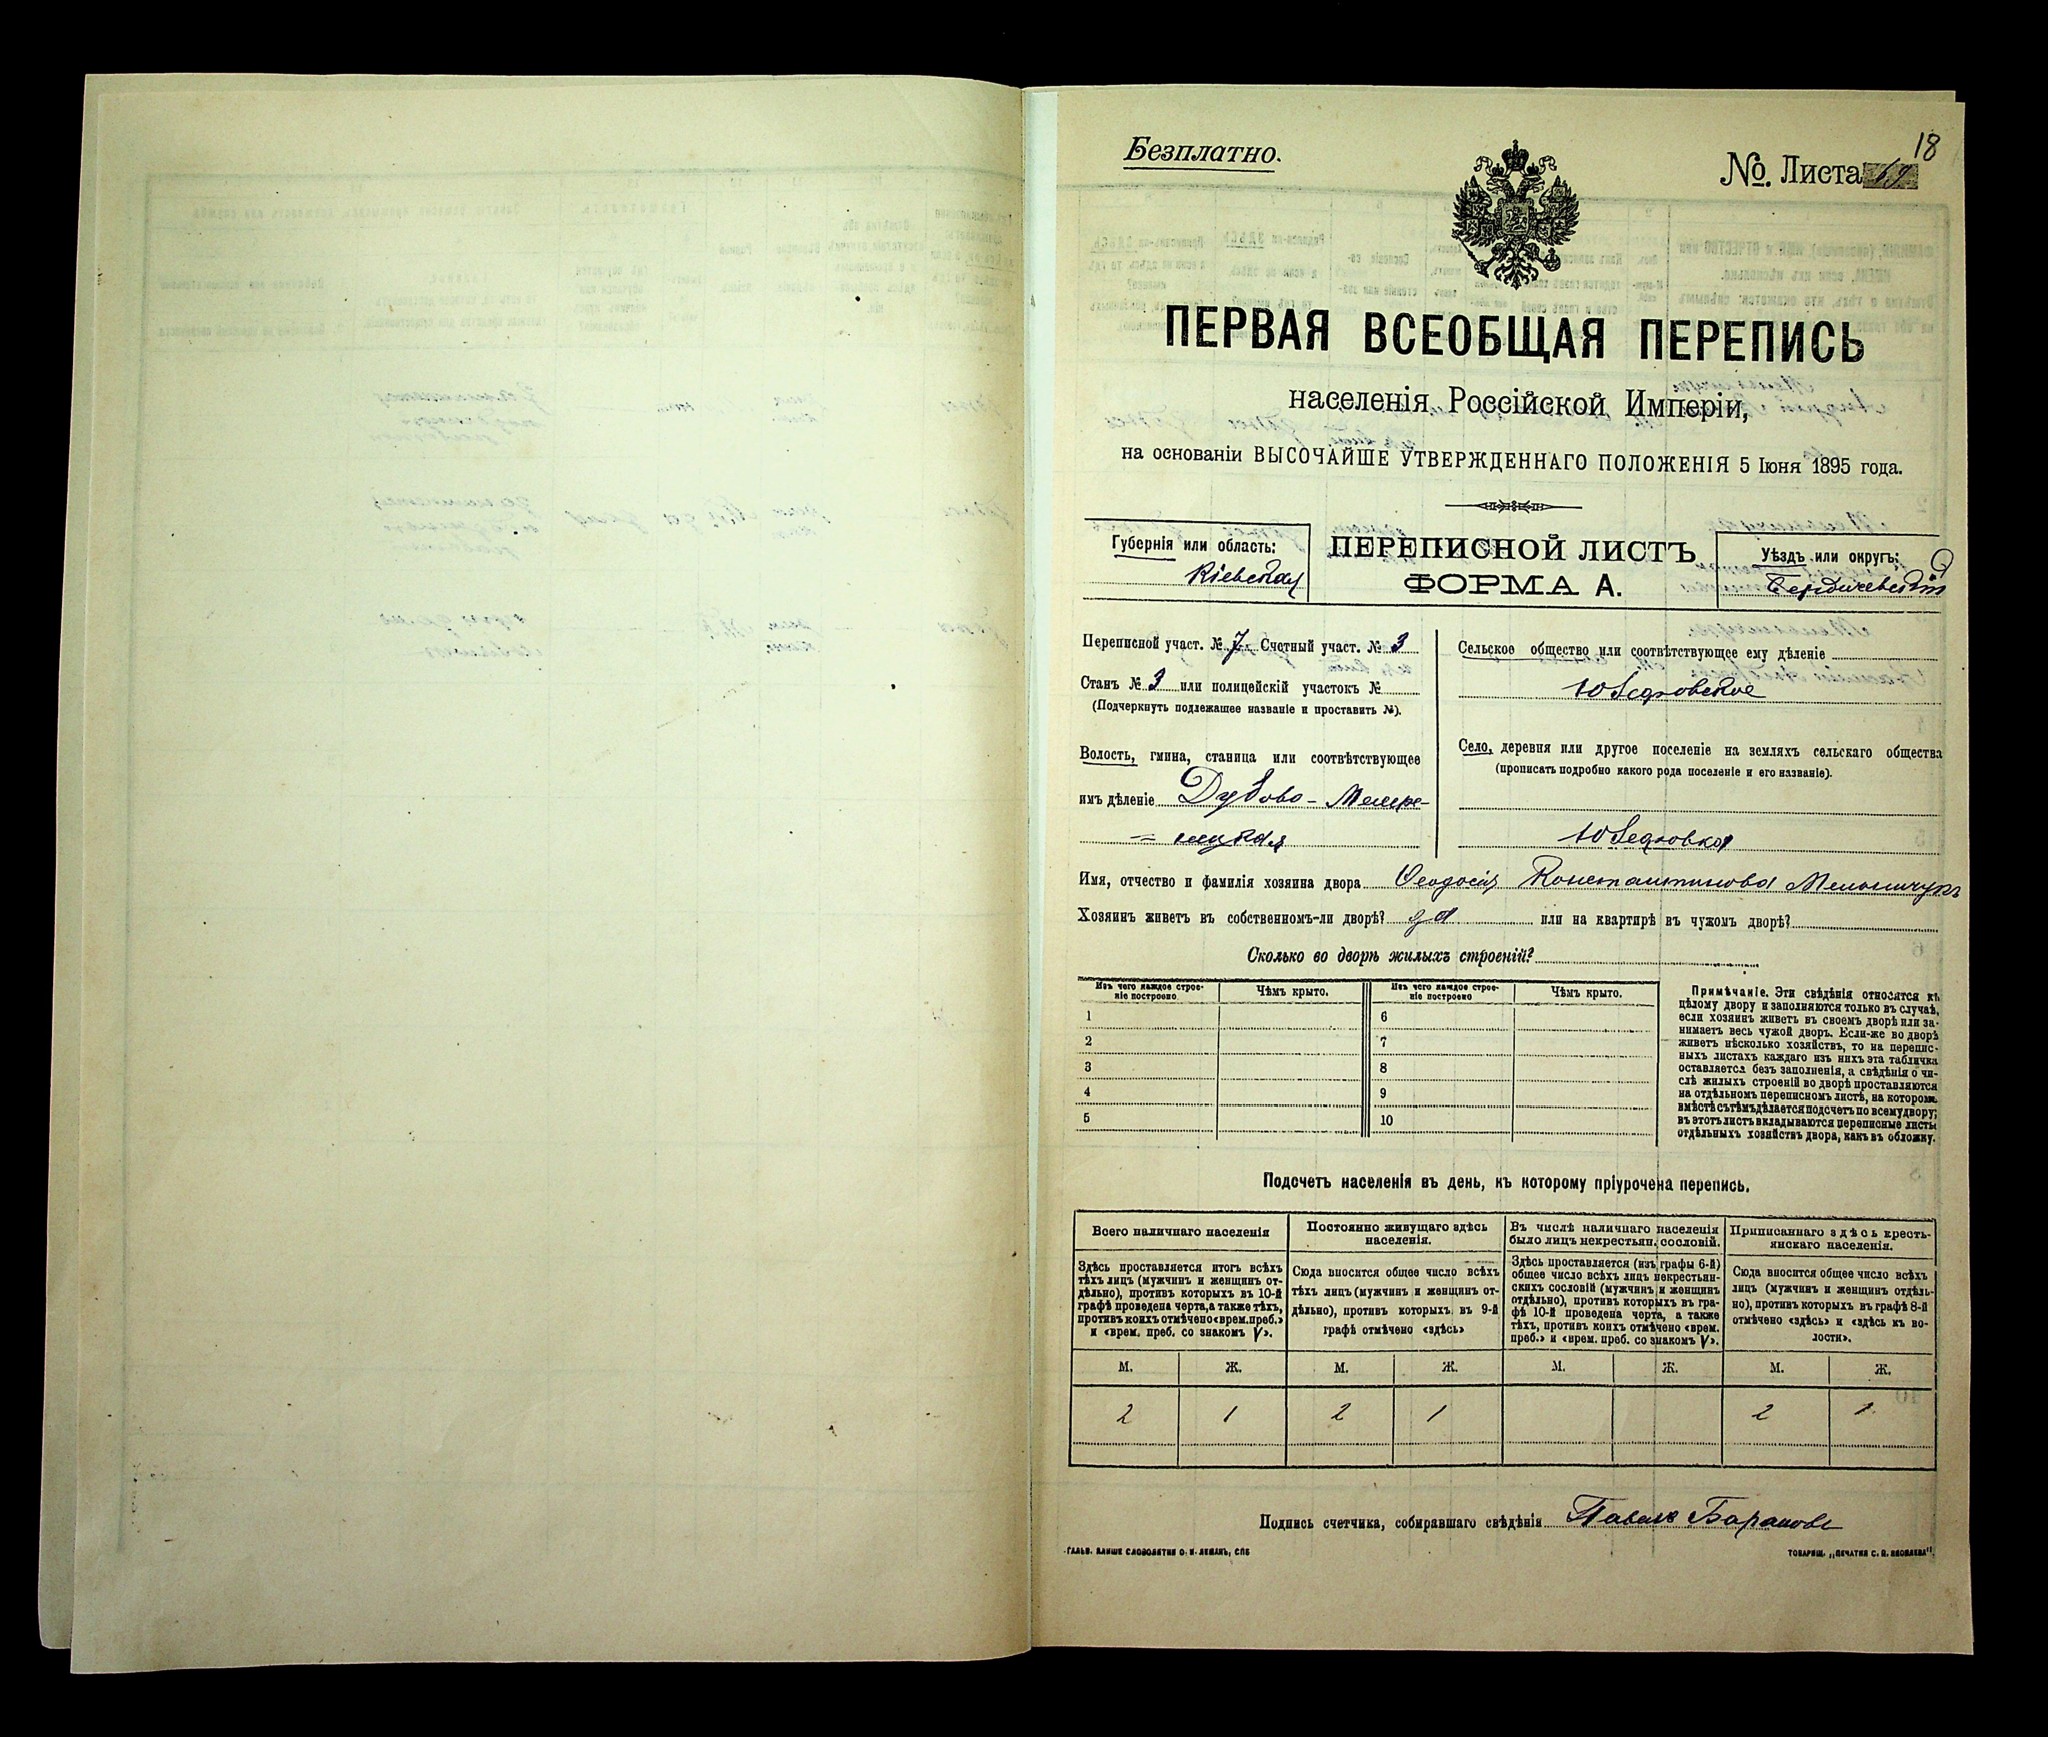 Безплатно.
18
№. Листа 69
ПЕРВАЯ ВСЕОБЩАЯ ПЕРЕПИСЬ
населенія Россійской Имперіи,
на основаніи ВЫСОЧАЙШЕ УТВЕРЖДЕННАГО ПОЛОЖЕНІЯ 5 Іюня 1895 года.
Губернія или область:
Кіевская
ПЕРЕПИСНОЙ ЛИСТЪ
ФОРМА А.
Уѣздъ или округъ:
Бердичевскій
Переписной участ. № 7 Счетный участ. № 3
Станъ № 3 или полицейскій участокъ №
(Подчеркнуть подлежащее названіе и проставить №).
Волость, гмина, станица или соотвѣтствующее
имъ дѣленіе Дубово-
Сельское общество или соотвѣтствующее ему дѣленіе
Село, деревня или другое поселеніе на земляхъ сельскаго общества
(прописать подробно какого рода поселеніе и его названіе).
Имя, отчество и фамилія хозяина двора Ѳеодосія Константинова Мельничукъ
Хозяинъ живетъ въ собственномъ-ли дворѣ? да или на квартирѣ въ чужомъ дворѣ?
Сколько во дворѣ жилыхъ строеній?
Изъ чего каждое строе-
ніе построено
Чѣмъ крыто.
Изъ чего каждое строе-
ніе построено
Чѣмъ крыто.
1 6
2 7
3 8
4 9
5 10
Примѣчаніе. Эти свѣдѣнія относятся къ
цѣлому двору и заполняются только въ случаѣ,
если хозяинъ живетъ въ своемъ дворѣ или за-
нимаетъ весь чужой дворъ. Если-же во дворѣ
живетъ нѣсколько хозяйствъ, то на перепис-
ныхъ листахъ каждаго изъ нихъ эта табличка
оставляется безъ заполненія, а свѣдѣнія о чи-
слѣ жилыхъ строеній во дворѣ проставляются
на отдѣльномъ переписномъ листѣ, на которомъ
вмѣстѣ съ тѣмъ дѣлается подсчетъ по всему двору;
въ этотъ листъ вкладываются переписные листы
отдѣльныхъ хозяйствъ двора, какъ въ обложку.
Подсчетъ населенія въ день, къ которому пріурочена перепись.
Всего наличнаго населенія
Здѣсь проставляется итогъ всѣхъ
тѣхъ лицъ (мужчинъ и женщинъ от-
дѣльно), противъ которыхъ въ 10-й
графѣ проведена черта, а также тѣхъ,
противъ коихъ отмѣчено «врем. преб.»
и «врем. преб. со знакомъ V».
Постоянно живущаго здѣсь
населенія.
Сюда вносится общее число всѣхъ
тѣхъ лицъ (мужчинъ и женщинъ от-
дѣльно), противъ которыхъ въ 9-й
графѣ отмѣчено «здѣсь»
Въ числѣ наличнаго населенія
было лицъ некрестьян. сословій.
Здѣсь проставляется (изъ графы 6-й)
общее число всѣхъ лицъ некрестьян-
скихъ сословій (мужчинъ и женщинъ
отдѣльно), противъ которыхъ въ гра-
фѣ 10-й проведена черта, а также
тѣхъ, противъ коихъ отмѣчено «врем.
преб.» и «врем. преб. со знакомъ V».
Приписаннаго здѣсь кресть-
янскаго населенія.
Сюда вносится общее число всѣхъ
лицъ (мужчинъ и женщинъ отдѣль-
но), противъ которыхъ въ графѣ 8-й
отмѣчено «здѣсь» и «здѣсь къ во-
лости».
М. Ж. М. Ж. М. Ж. М. Ж.
2 1 2 1 2 1
Подпись счетчика, собиравшаго свѣдѣнія Павелъ Барановъ
ГАЛЬВ. КЛИШЕ СЛОВОЛИТНИ О. И. ЛЕМАНЪ, СПБ
ТОВАРИЩ. „ПЕЧАТНЯ С. П. ЯКОВЛЕВА"